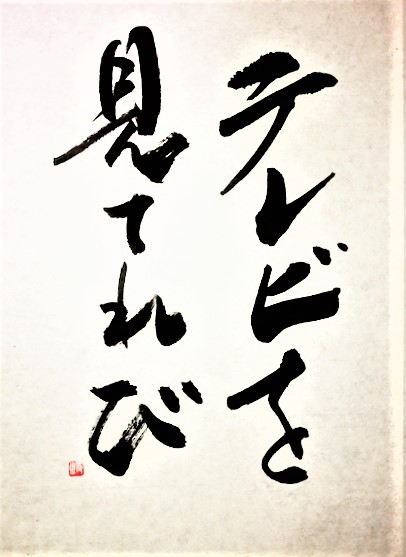 テレビを
見てれび